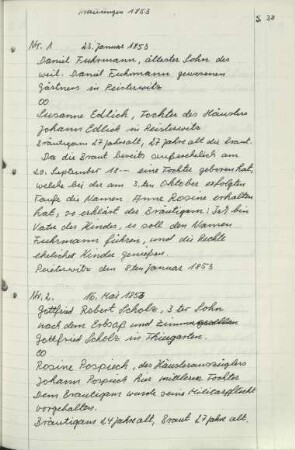 Trauungen 1853
S. 38
Nr. 1 23. Januar 1853
Daniel Fuhrmann, ältester Sohn des
weil. Daniel Fuhrmann gewesenen
Gärtners in Peisterwitz
∞
Susanne Edlich, Tochter des Häuslers
Johann Edlich in Peisterwitz
Bräutigam 27 Jahr alt, 27 Jahr alt die Braut.
Da die Braut bereits außerehelich am
20. September 18-- eine Tochter geboren hat,
welche bei der am 3. ten Oktober erfolgten
Taufe die Namen Anna Rosine erhalten
hat, so erklärt der Bräutigam: Ich bin
Vater des Kindes, es soll den Namen
Fuhrmann führen, und die Rechte
ehelicher Kinder genießen.
Peisterwitz den 8ten Januar 1853
Nr. 2. 16. Mai 1853
Gottfried Robert Scholz, 3 ter Sohn
nach dem Erbsaß und
Gottfried Scholz in Thiergarten.
∞
Rosine Pospiech, des Häuslerauszüglers
Johann Pospiech hier mittlere Tochter
Dem Bräutigam wurde seine Militärpflicht
vorgehalten.
Bräutigam 24 Jahre alt, Braut 27 Jahre alt.